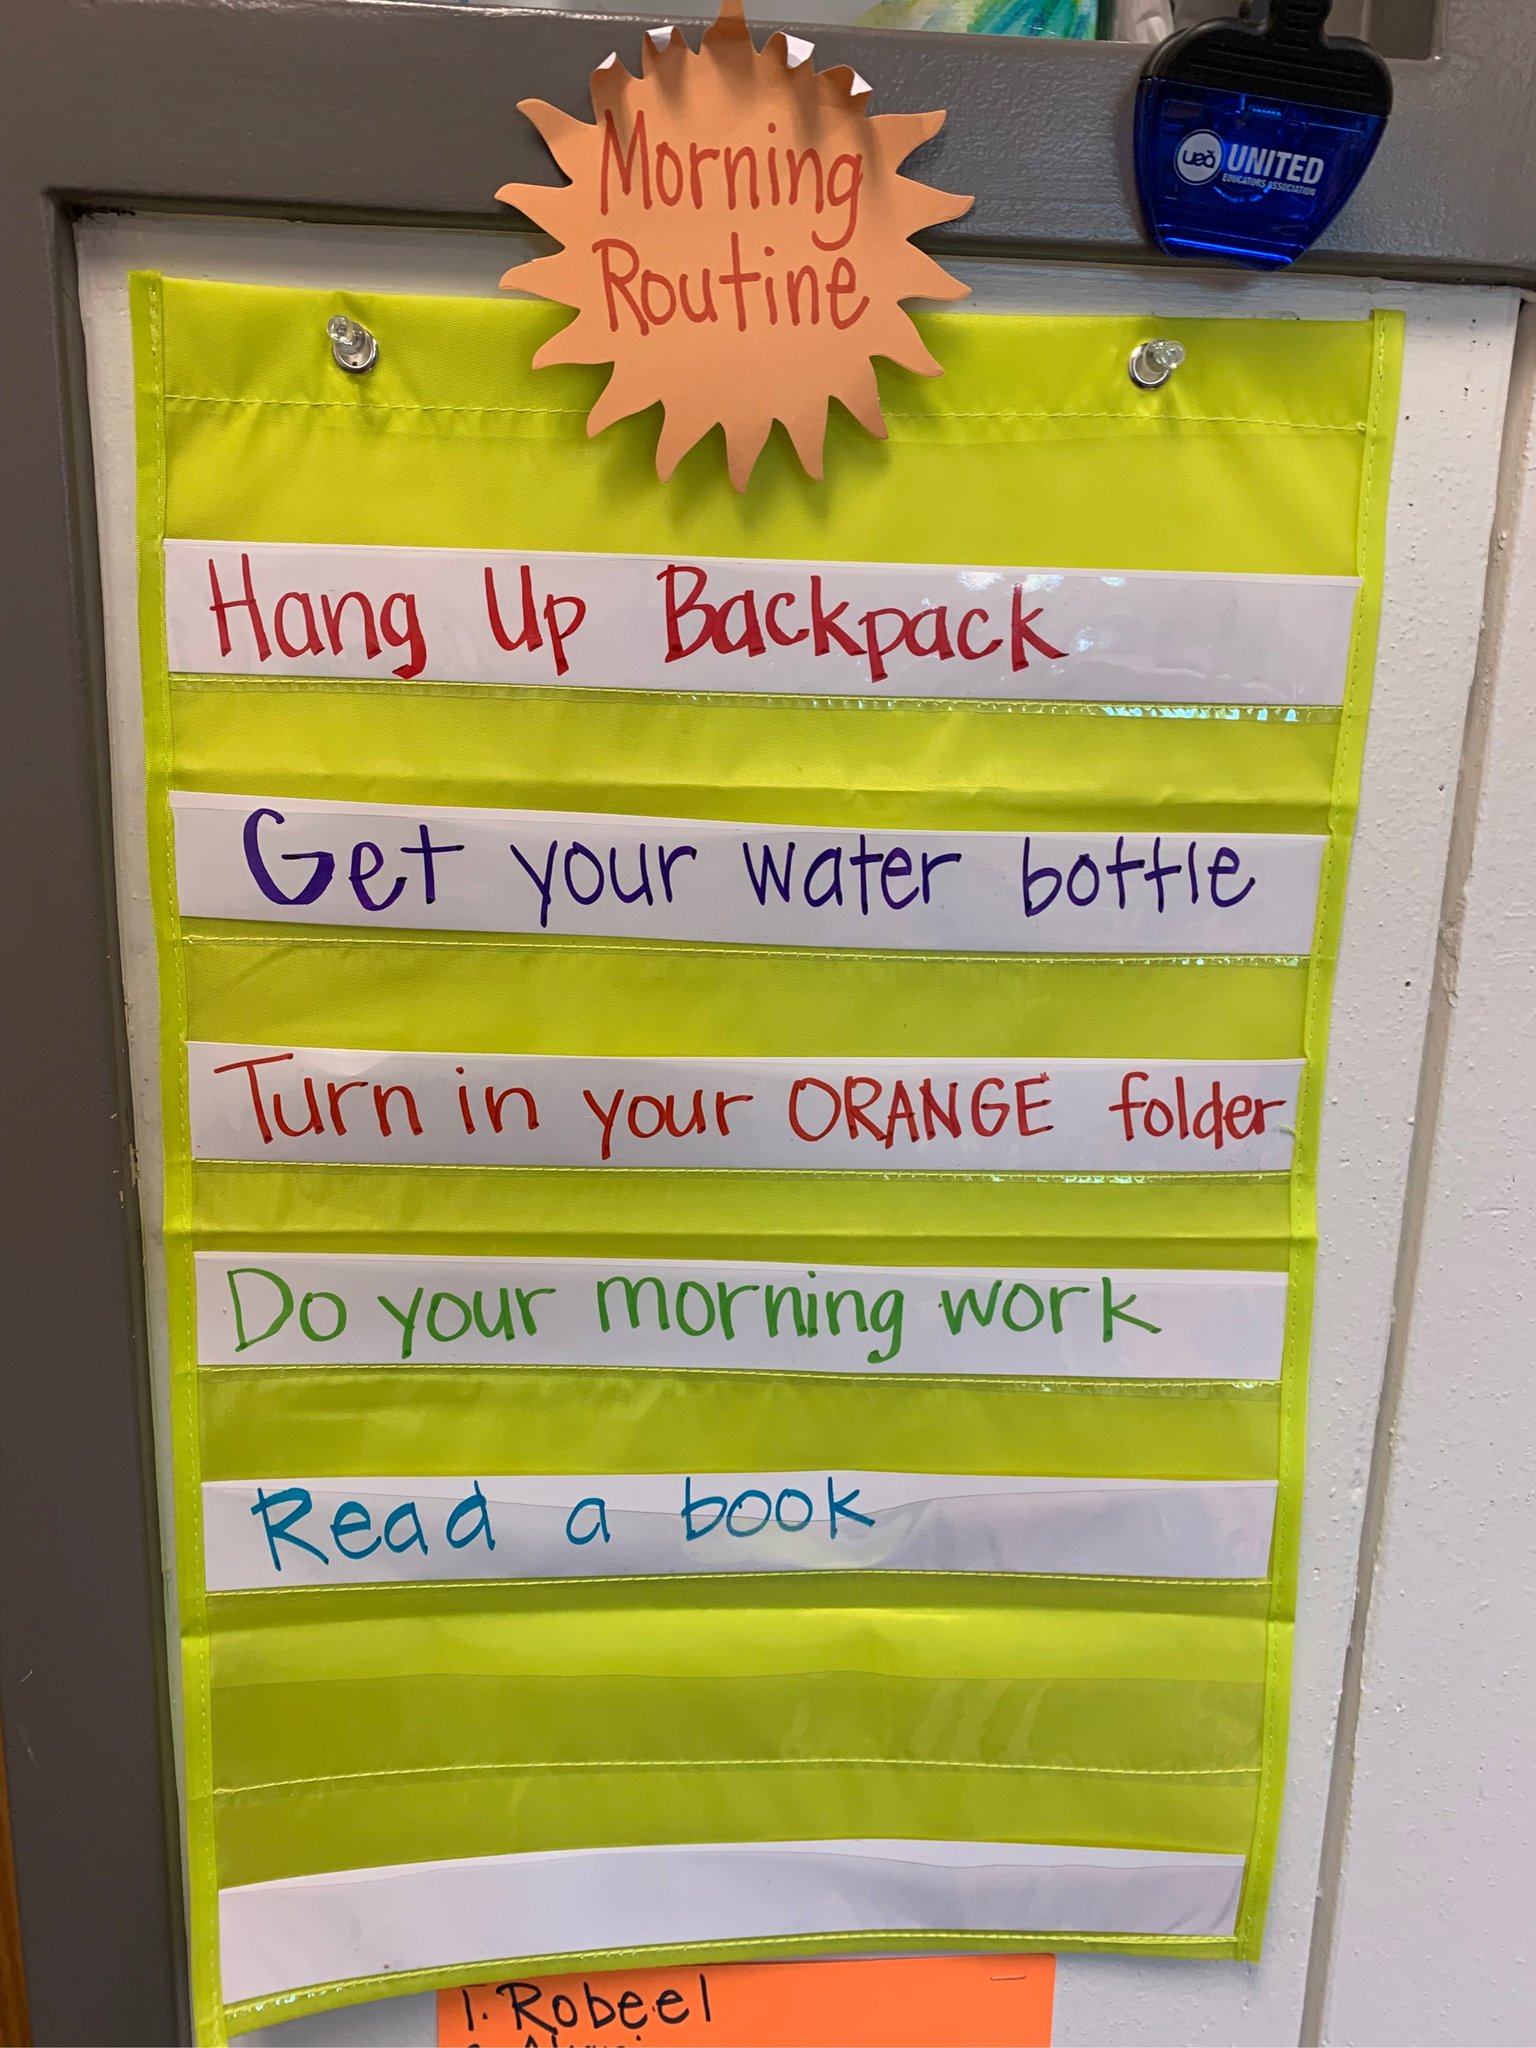 Morning
Routine
uea UNITED
EDUCATORS ASSOCIATION
Hang Up Backpack
Get your water bottle
Turn in your ORANGE folder
Do your morning work
Read a book
1. Robeel